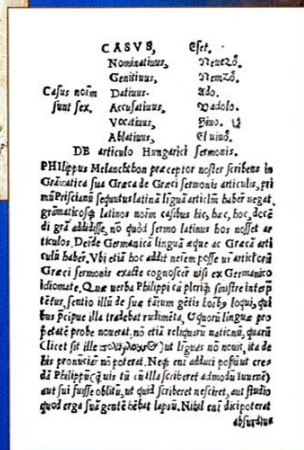 CASVS, Eset.
Nominatiuus, Neuezŏ.
Genitiuus, Nemzŏ.
Casus noīm Datiuus. Ado.
sunt sex. Accusatiuus, Vadolo.
Vocatiuus, Hiuo.
Ablatiuus, El uiuŏ.
DE articulo Hungarici sermonis.
PHilippus Melanchthon præceptor noster scribens in
Grāmatica sua Græca de Græci sermonis articulis, pri
mū Priscianū sequutus latinā linguā articulū habere negat,
grāmaticosq́ latinos noīm casibus hic, hæc, hoc, docē
di grā addidisse, nō quod sermo latinus hos nosset ar
ticulos. Deīde Germanicā linguā æque ac Græcā arti
culū habere. Vbi etiā hoc addit neīem posse uī articlorū
Græci sermonis exacte cognoscere nisi ex Germanico
idiomate. Quæ uerba Philippi cū pleriq́ sinistre interp
tētur, sentio illū de suæ tātum gētis loqui, qui
bus pcipue illa tradebat rudimēta, Quorū linguā pro
pe tāte probe nouerat, nō etiā reliquarū natiōnū, quarū
(licet sit ille ut linguas nō nouit, ita de
his pronūciare nō poterat. Neq́ eni adduci possū ut cre
dā Philippū (quis tū cū illa scriberet admodū iuuenē)
aut sui fuisse oblitū, ut quid scriberet nesciret, aut studio
quod erga suā gentē hēbat lapsū. Nihil eni dici poterat
absurdius